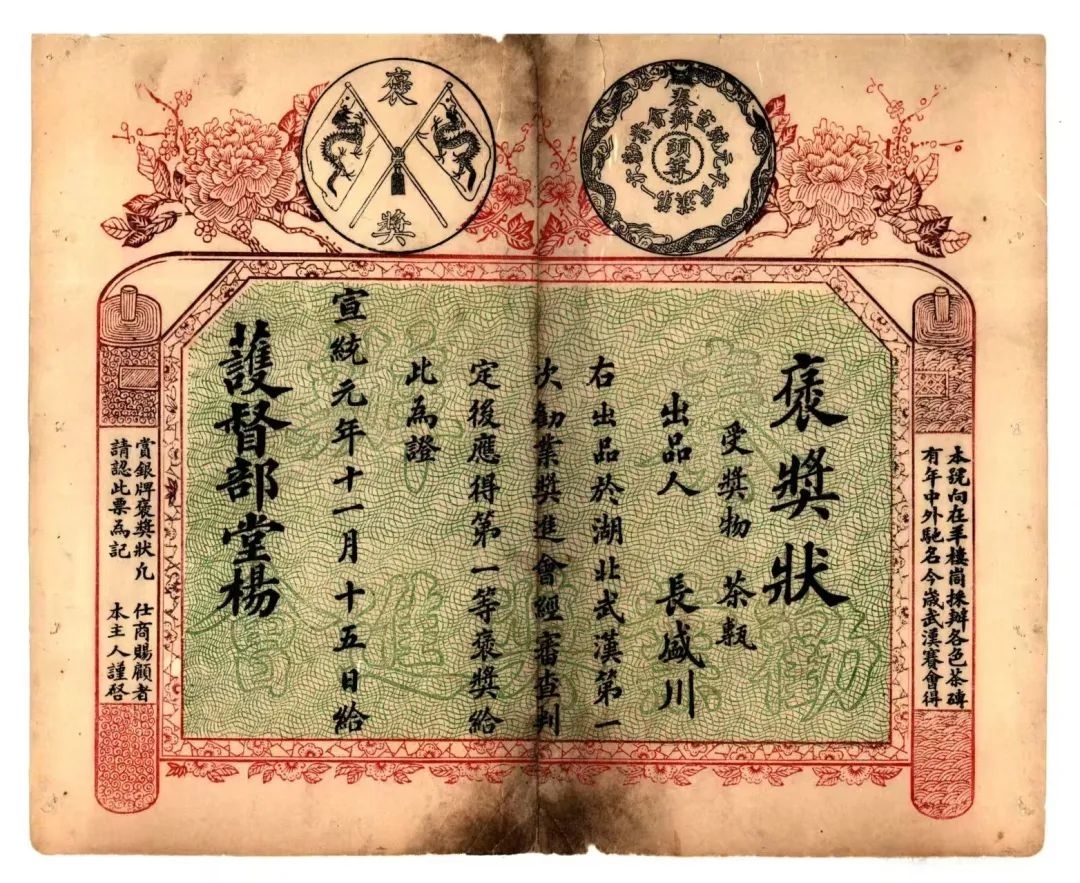 褒獎
奏辦
頭等
褒獎狀
受獎物 茶甎
出品人 長盛川
右出品於湖北武漢第一
次勸業獎進會經審查判
定後應得第一等褒獎給
此為證
宣統元年十一月十五日給
護督部堂楊
本號向在羊樓崗採辦各色茶磚
有年中外馳名今歲武漢賽會得
賞銀牌褒獎狀凡 仕商賜顧者
請認此票為記 本主人謹啓